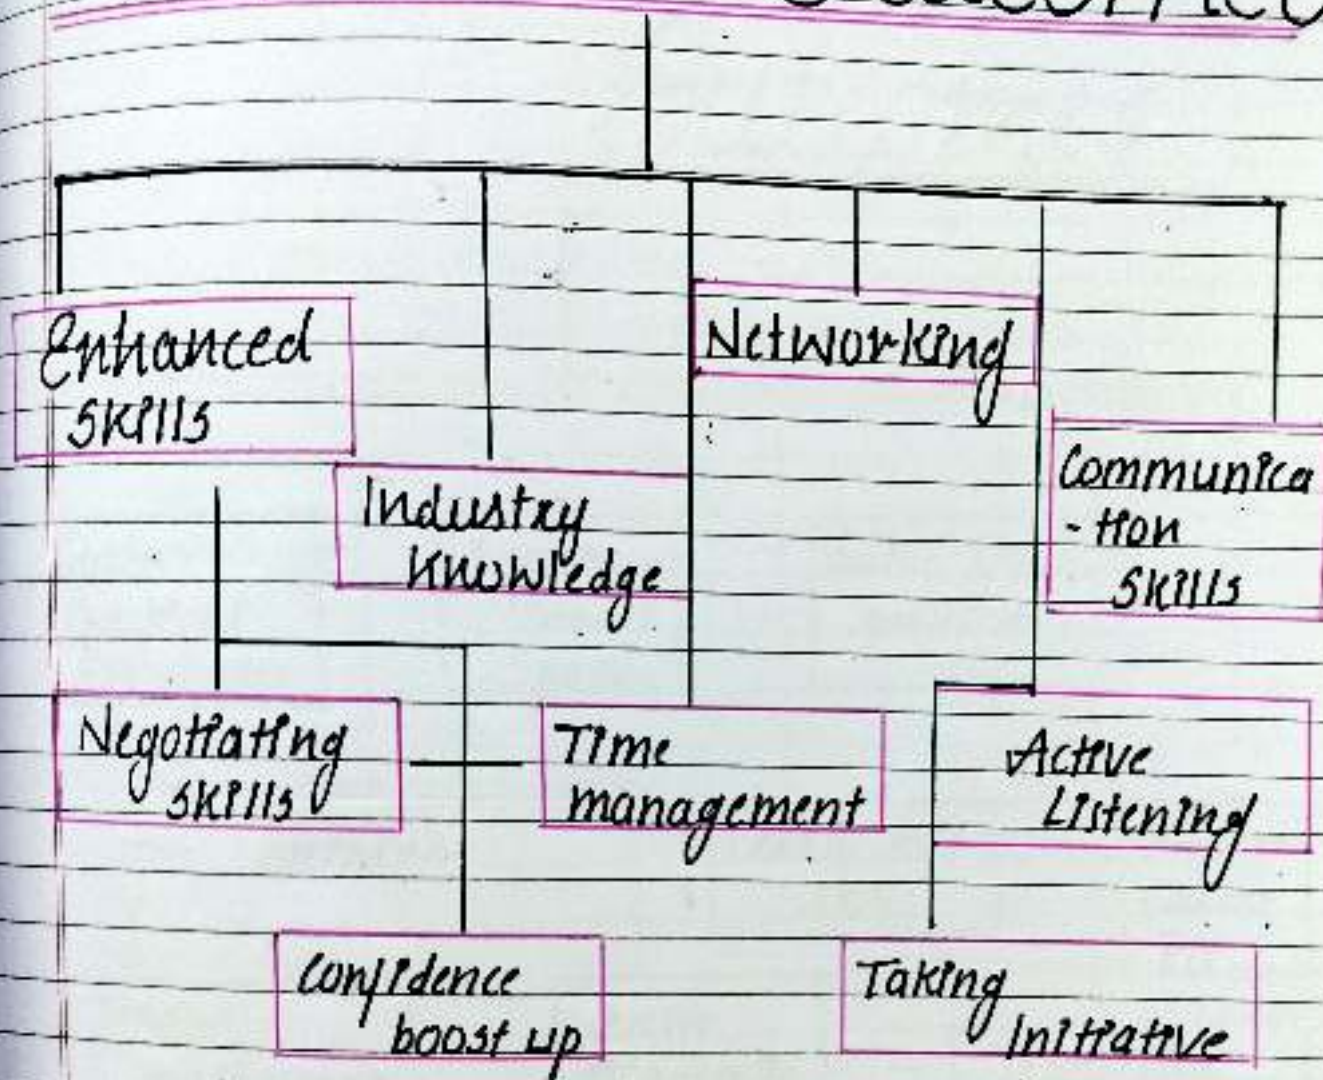 Enhanced
Skills
Networking
Industry
Knowledge
Communica
-tion
Skills
Negotiating
Skills
Time
management
Active
Listening
Confidence
boost up
Taking
Initiative